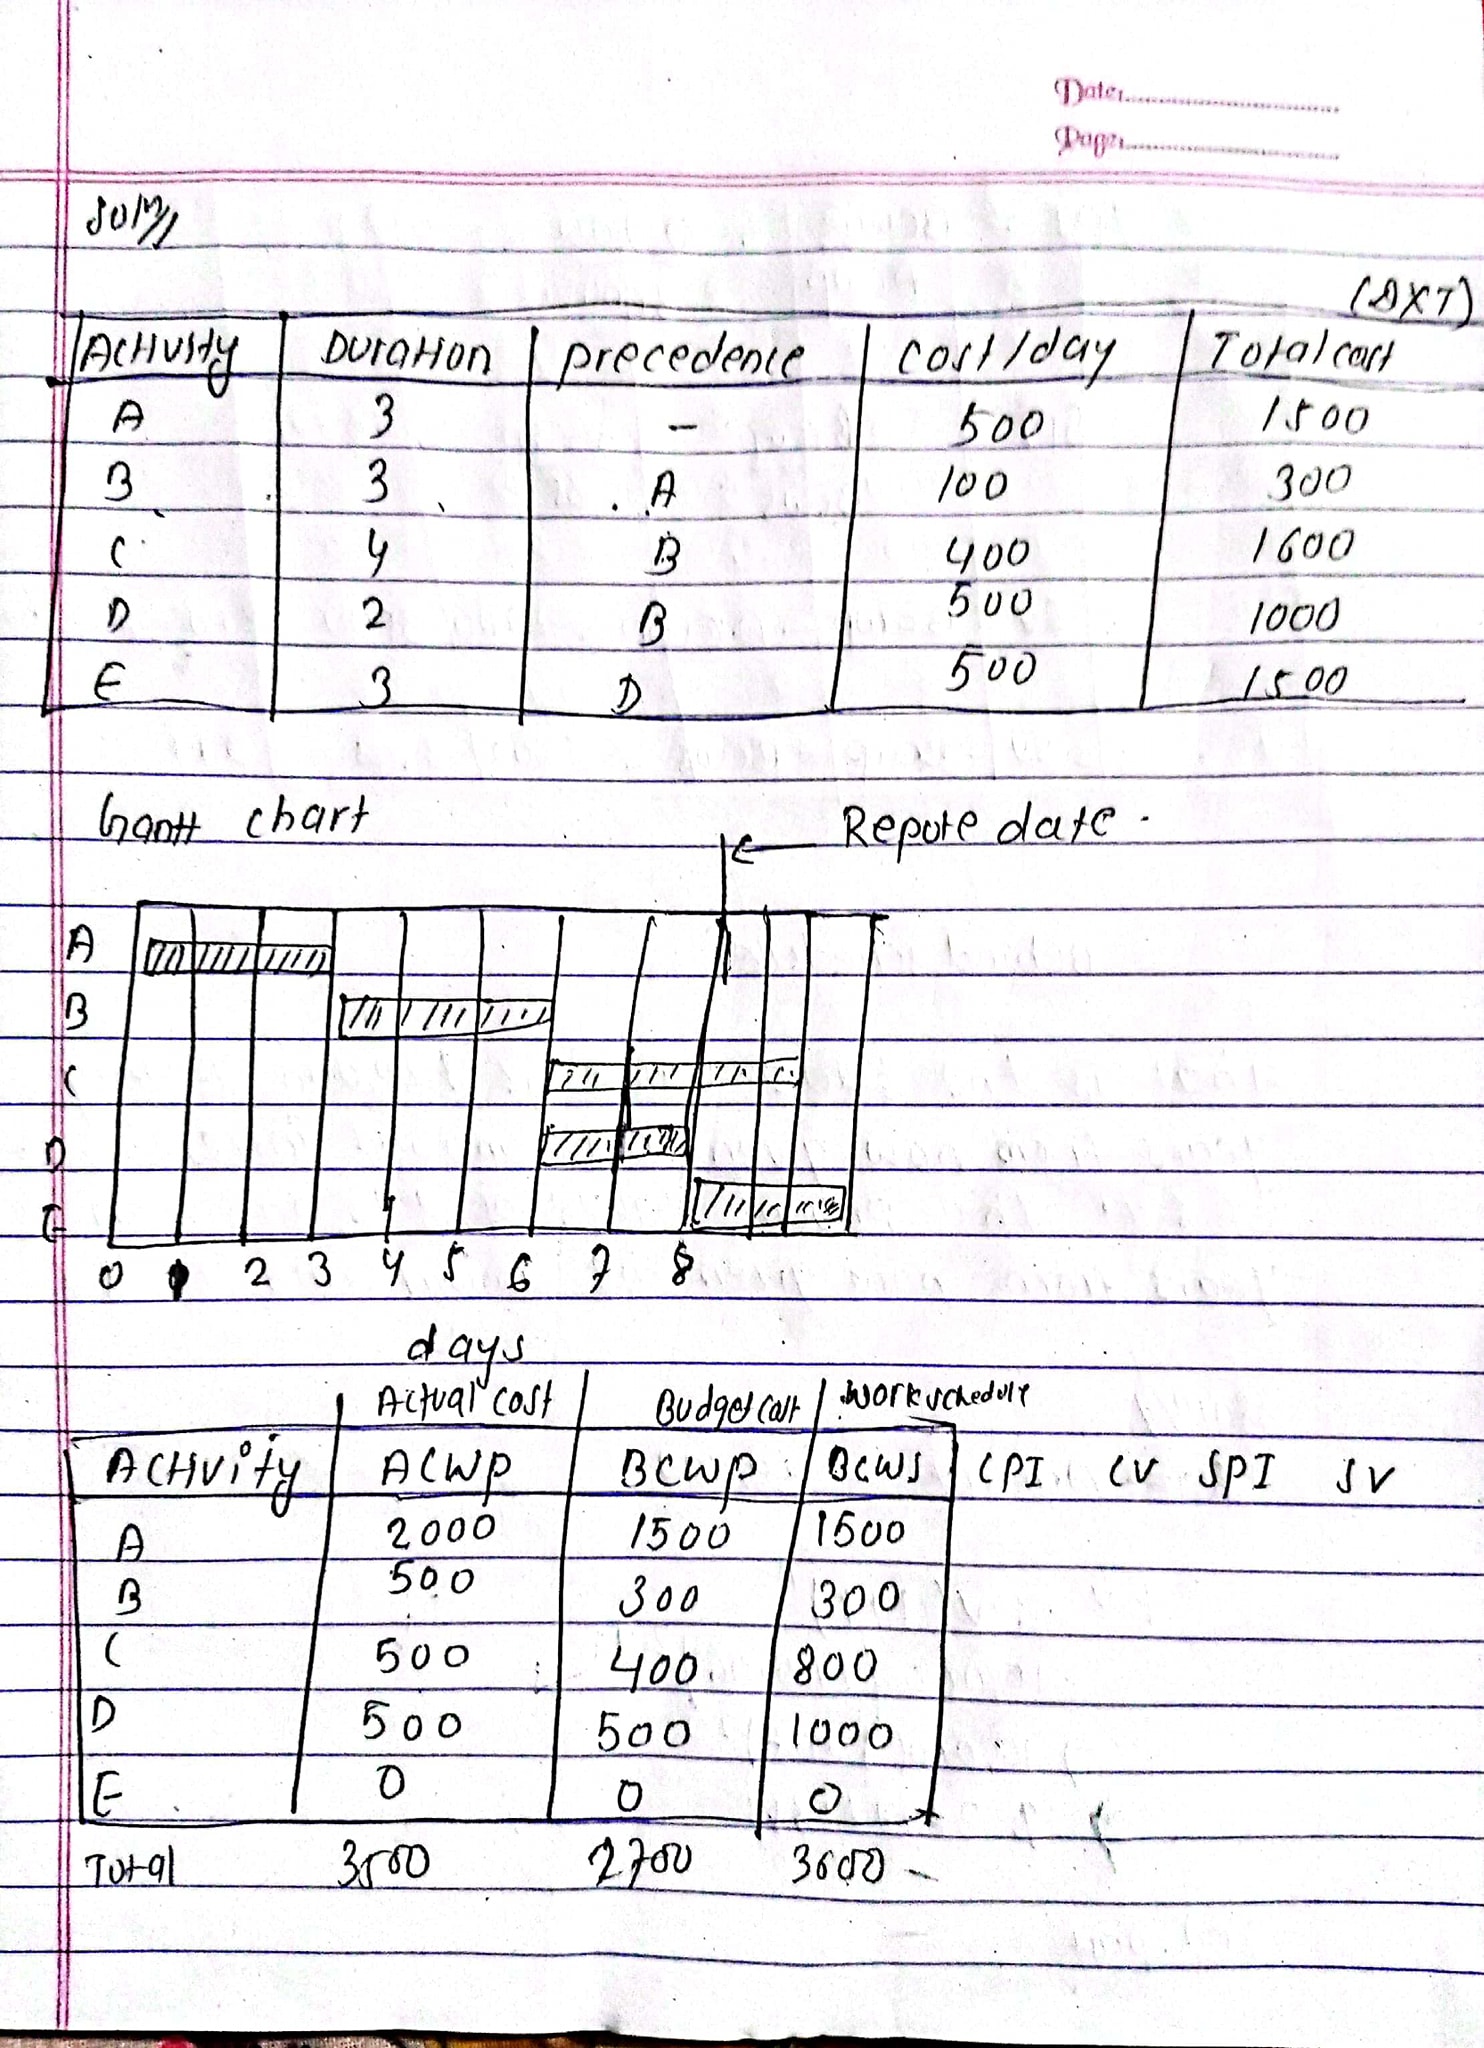 Date:
Page:
Soln//
(DXT)
Activity Duration precedence cost/day Total cost
A 3 - 500 1500
B 3 A 100 300
C 4 B 400 1600
D 2 B 500 1000
E 3 D 500 1500
Gantt chart
← Repote date.
A
B
C
D
E
0 1 2 3 4 5 6 7 8
days
Actual cost Budget cost work schedule
Activity ACWP BCWP BCWS CPI CV SPI SV
A 2000 1500 1500
B 500 300 300
C 500 400 800
D 500 500 1000
E 0 0 0
Total 3500 2700 3600